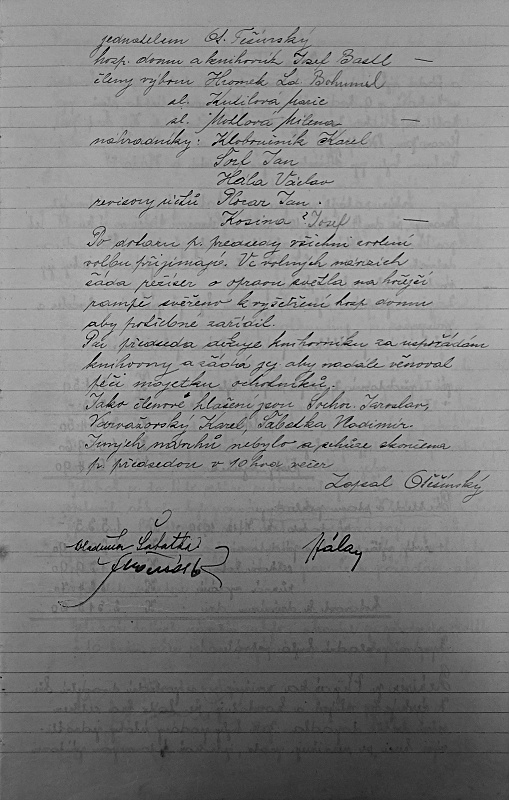 jednatelem O. Těšínský
hosp. domu a knihovník Josef Bastl —
členy výboru Hromek La. Bohumil
sl. Kutilova Marie
sl. Motlová Milena —
náhradníky: Kloboučník Karel
Šorl Jan
Hála Václav
revisory účtů Plocar Jan.
Kosina Josef —
Po dotazu p. předsedy všichni zvolení
volbu přijímají. Ve volných návrzích
žádá režiser o opravu světla na hořejší
rampě svěřeno k vyšetření hosp. domu
aby potřebné zařídil.
Pan předseda děkuje knihovníku za uspořádání
knihovny a žádá jej aby nadále věnoval
péči majetku ochotníků.
Jako členové hlášeni jsou Sochor Jaroslav,
Karel, Sabatka Vladimír.
Jiných návrhů nebylo a schůze skončena
p. předsedou v 10 hod večer
Zapsal OTěšínský
Vladimír Sabatka
Hálay